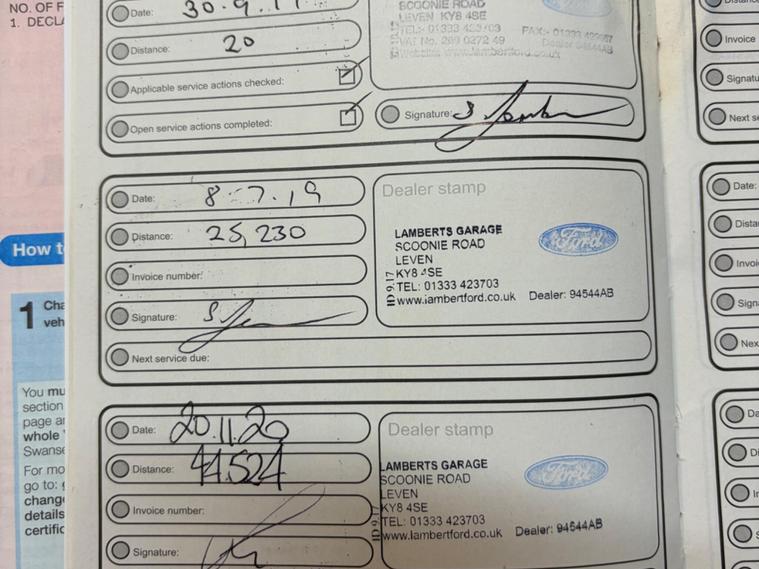 NO. OF F
1. DECLA
Date: 30.9.1
Distance: 20
Applicable service actions checked:
Open service actions completed:
SCOONIE ROAD
LEVEN KY8 4SE
TEL: 01333 423703
VAT No. 269 0272 49
Dealer 94544AB
Signature:
Date: 8.7.19
Distance: 25,230
Invoice number:
Signature:
Next service due:
Dealer stamp
LAMBERTS GARAGE
SCOONIE ROAD
LEVEN
KY8 4SE
TEL: 01333 423703
www.lambertford.co.uk Dealer: 94544AB
ID 9.17
Ford
Date: 20.11.20
Distance: 44.524
Invoice number:
Signature:
Dealer stamp
LAMBERTS GARAGE
SCOONIE ROAD
LEVEN
KY8 4SE
TEL: 01333 423703
www.lambertford.co.uk Dealer: 94544AB
ID 9.17
Ford
How t
1 Cha
veh
You mu
section
page an
whole
Swanse
For mo
go to:
change
details
certific
Invoice
Signatu
Next se
Date:
Dista
Invoi
Sign
Nex
Da
Di